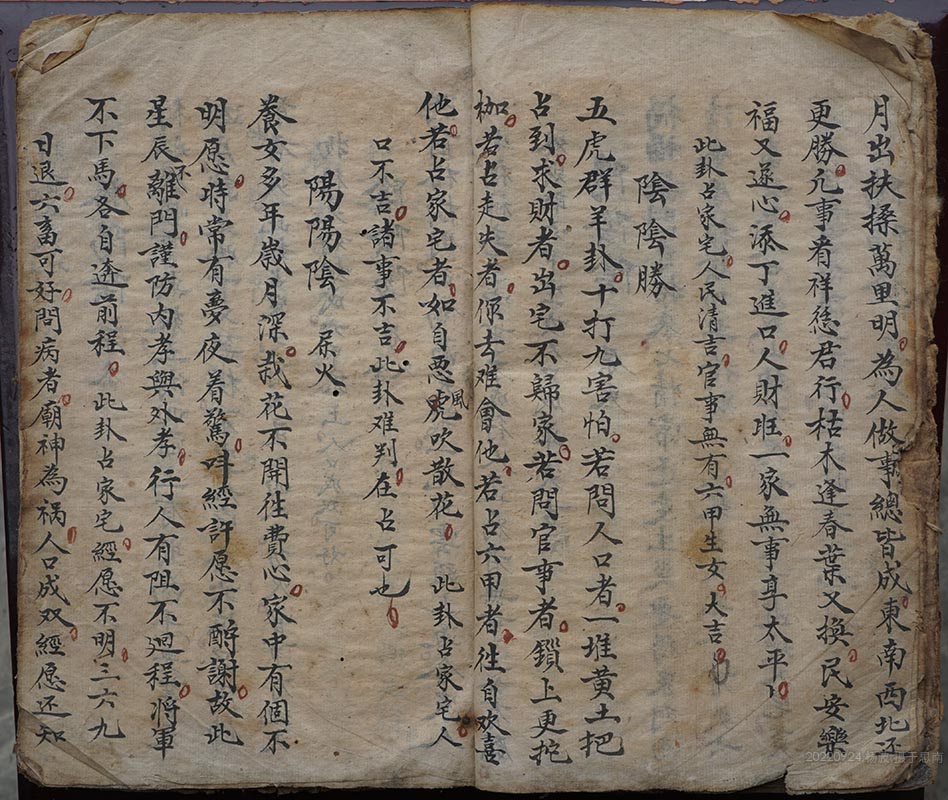 月出扶搡萬里明為人做事總皆成東南西北还
更勝凢事看祥徳君行枯木逢春葉又換民安樂
福又遂心添丁進口人財旺一家無事享太平
此卦占家宅人民清吉官事無有六甲生女大吉
陰陰勝
五虎群羊卦十打九害怕若問人口者一堆黄土把
占到求財者出宅不歸家若問官事者鎖上更抳
枷若占走失者你去难會他若占六甲者徃自欢喜
他若占家宅者如自悪風虎吹散花此卦占家宅人
口不吉諸事不吉此卦难判在占可也
陽陽陰 尿火
養女多年嵗月深栽花不開徃費心家中有個不
明愿時常有夢夜着驚呌經許愿不酧謝故此
星辰不離門謹防内孝與外孝行人有阻不迴程將軍
不下馬各自逩前程此卦占家宅經愿不明三六九
日退六畜可好問病者廟神為祸人口成双經愿还知